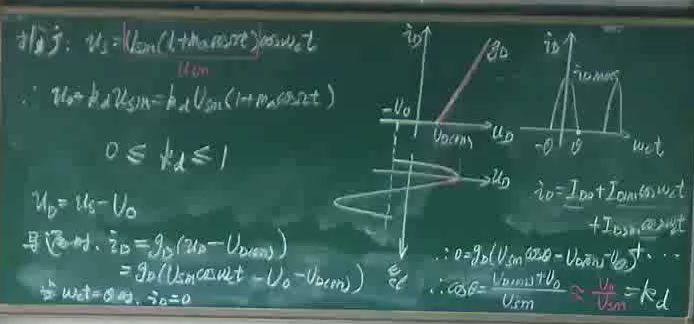 u_s = U_sm(1+m_a cosΩt) cosω_c t
U_sm
∴ u_o = k_d U_sm = k_d U_sm(1+m_a cosΩt)
0 ≤ k_d ≤ 1
u_D = u_s - U_o
导通时, i_D = g_D(u_D - U_D(on))
= g_D(U_sm cosω_c t - U_o - U_D(on))
当 ω_c t = θ 时, i_D = 0
i_D
g_D
-U_o
U_D(on)
u_D
u_D
ω_c t
i_D
i_Dmax
-θ
θ
ω_c t
i_D = I_D0 + I_D1m cosω_c t
+ I_D2m cos2ω_c t
+ ...
∴ 0 = g_D(U_sm cosθ - U_D(on) - U_o)
∴ cosθ = (U_D(on) + U_o) / U_sm ≈ U_o / U_sm = k_d